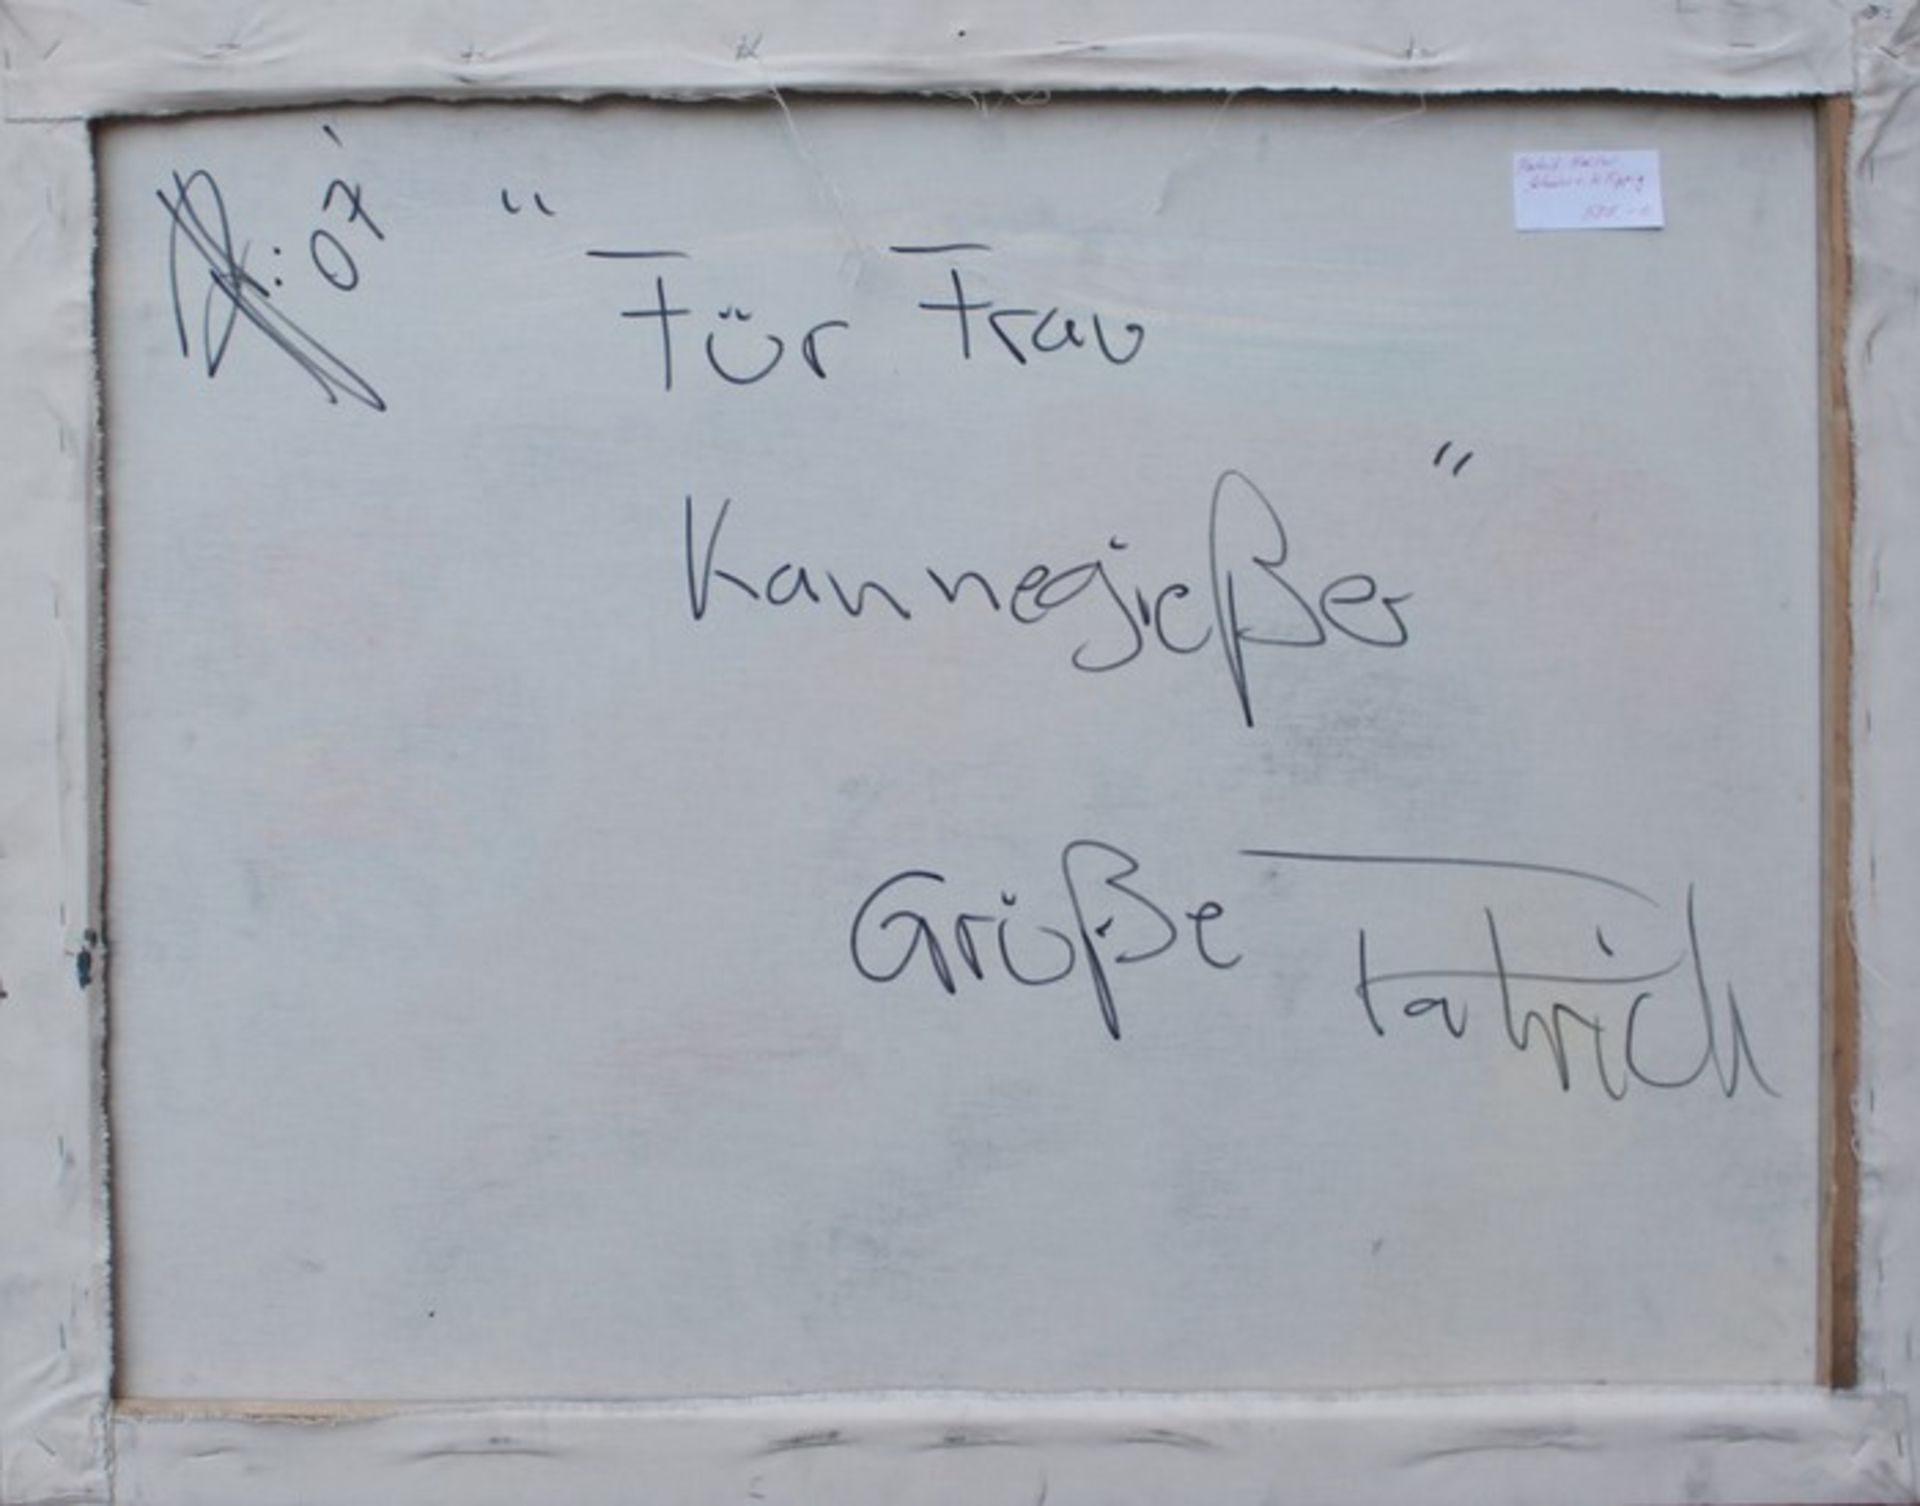 : 07'
"Für Frau
Kannegießer"
Grüße Patrick